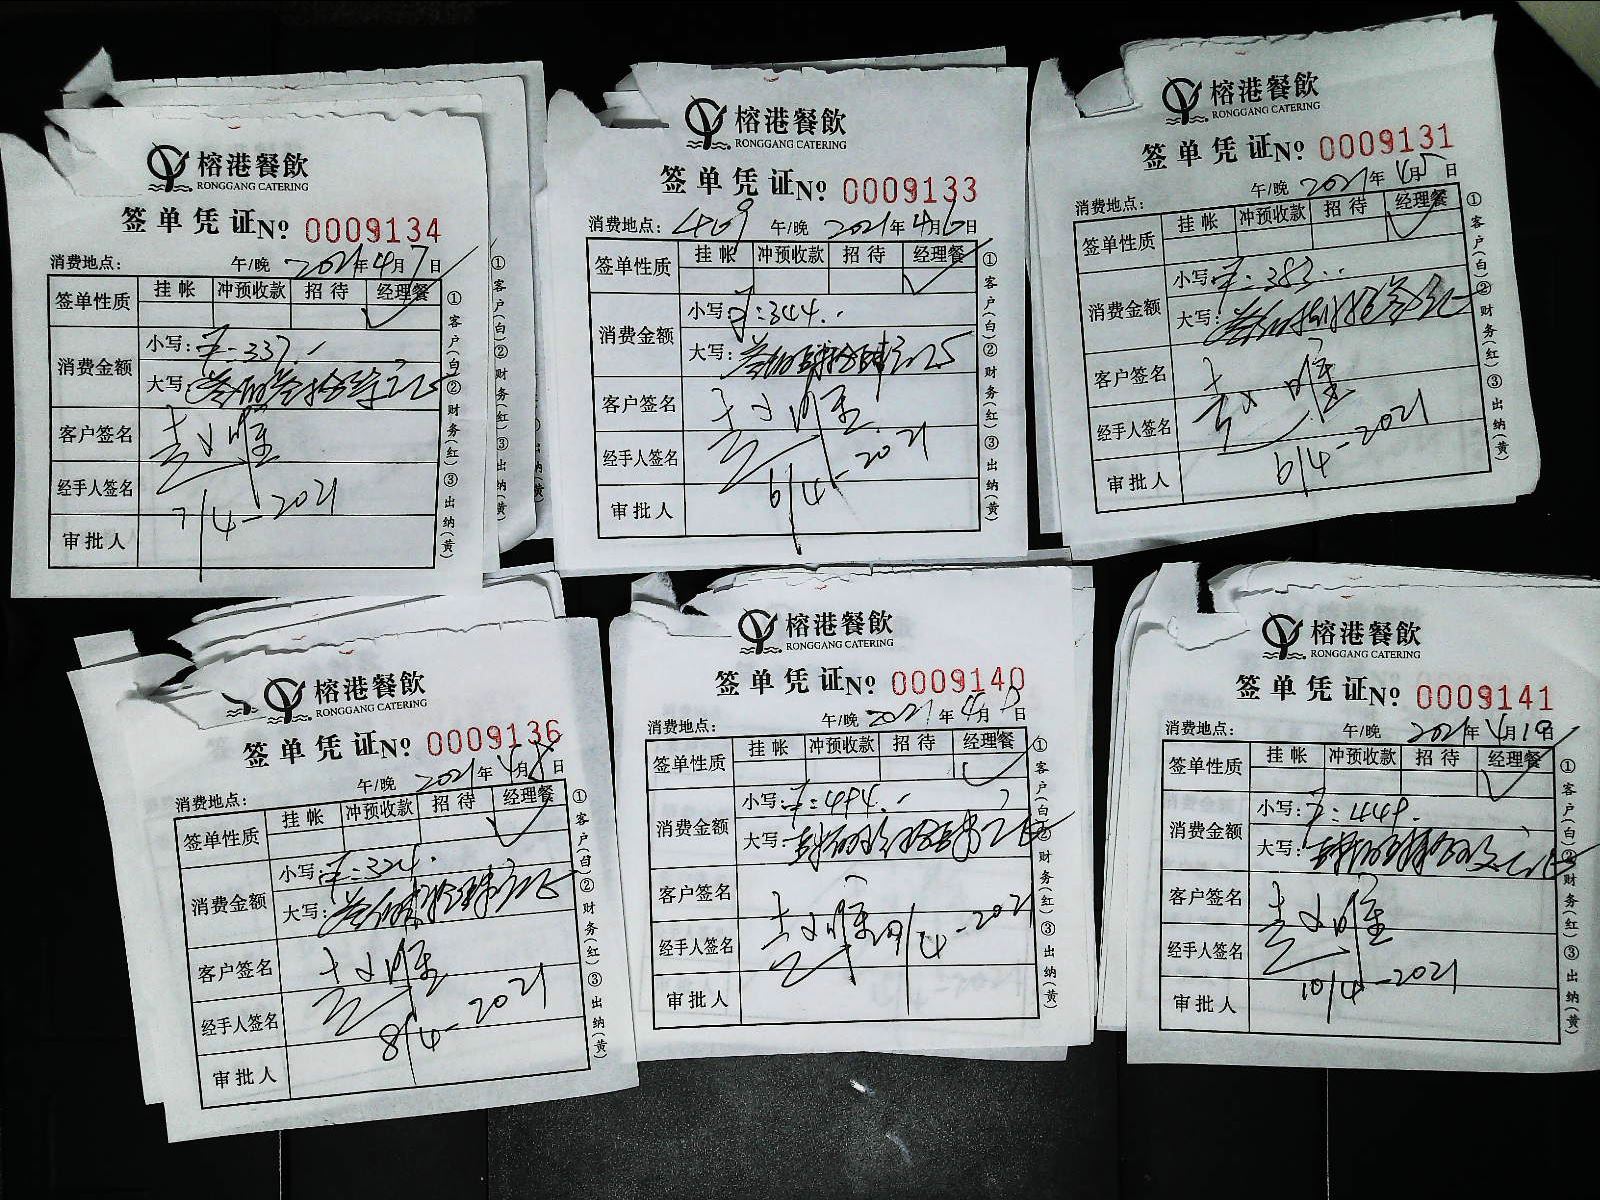 榕港餐飲
RONGGANG CATERING
签单凭证No. 0009134
消费地点: 午/晚 2021年4月7日
签单性质 挂帐 冲预收款 招待 经理餐
消费金额 小写: 337.
大写:
客户签名
经手人签名
7/4-2021
审批人
①客户(白)②财务(红)③出纳(黄)
榕港餐飲
RONGGANG CATERING
签单凭证No. 0009133
消费地点: 469 午/晚 2021年4月6日
签单性质 挂帐 冲预收款 招待 经理餐
消费金额 小写: 344.
大写:
客户签名
经手人签名
6/4-2021
审批人
①客户(白)②财务(红)③出纳(黄)
榕港餐飲
RONGGANG CATERING
签单凭证No. 0009131
午/晚 2021年4月5日
消费地点:
签单性质 挂帐 冲预收款 招待 经理餐
消费金额 小写: 383.
大写:
客户签名
经手人签名
6/4-2021
审批人
①客户(白)②财务(红)③出纳(黄)
榕港餐飲
RONGGANG CATERING
签单凭证No. 0009136
午/晚 2021年4月8日
消费地点:
签单性质 挂帐 冲预收款 招待 经理餐
消费金额 小写: 324.
大写:
客户签名
经手人签名
8/4-2021
审批人
①客户(白)②财务(红)③出纳(黄)
榕港餐飲
RONGGANG CATERING
签单凭证No. 0009140
消费地点: 午/晚 2021年4月 日
签单性质 挂帐 冲预收款 招待 经理餐
消费金额 小写:
大写:
客户签名
经手人签名
9/4-2021
审批人
①客户(白)②财务(红)③出纳(黄)
榕港餐飲
RONGGANG CATERING
签单凭证No. 0009141
消费地点: 午/晚 2021年4月10日
签单性质 挂帐 冲预收款 招待 经理餐
消费金额 小写:
大写:
客户签名
经手人签名
10/4-2021
审批人
①客户(白)②财务(红)③出纳(黄)